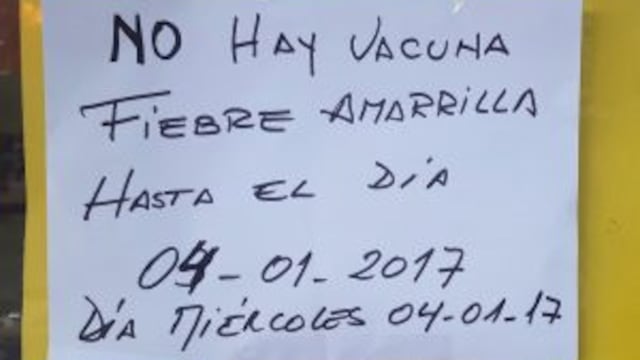 NO HAY VACUNA
FIEBRE AMARRILLA
HASTA EL DÍA
04-01-2017
DÍA MIÉRCOLES 04-01-17